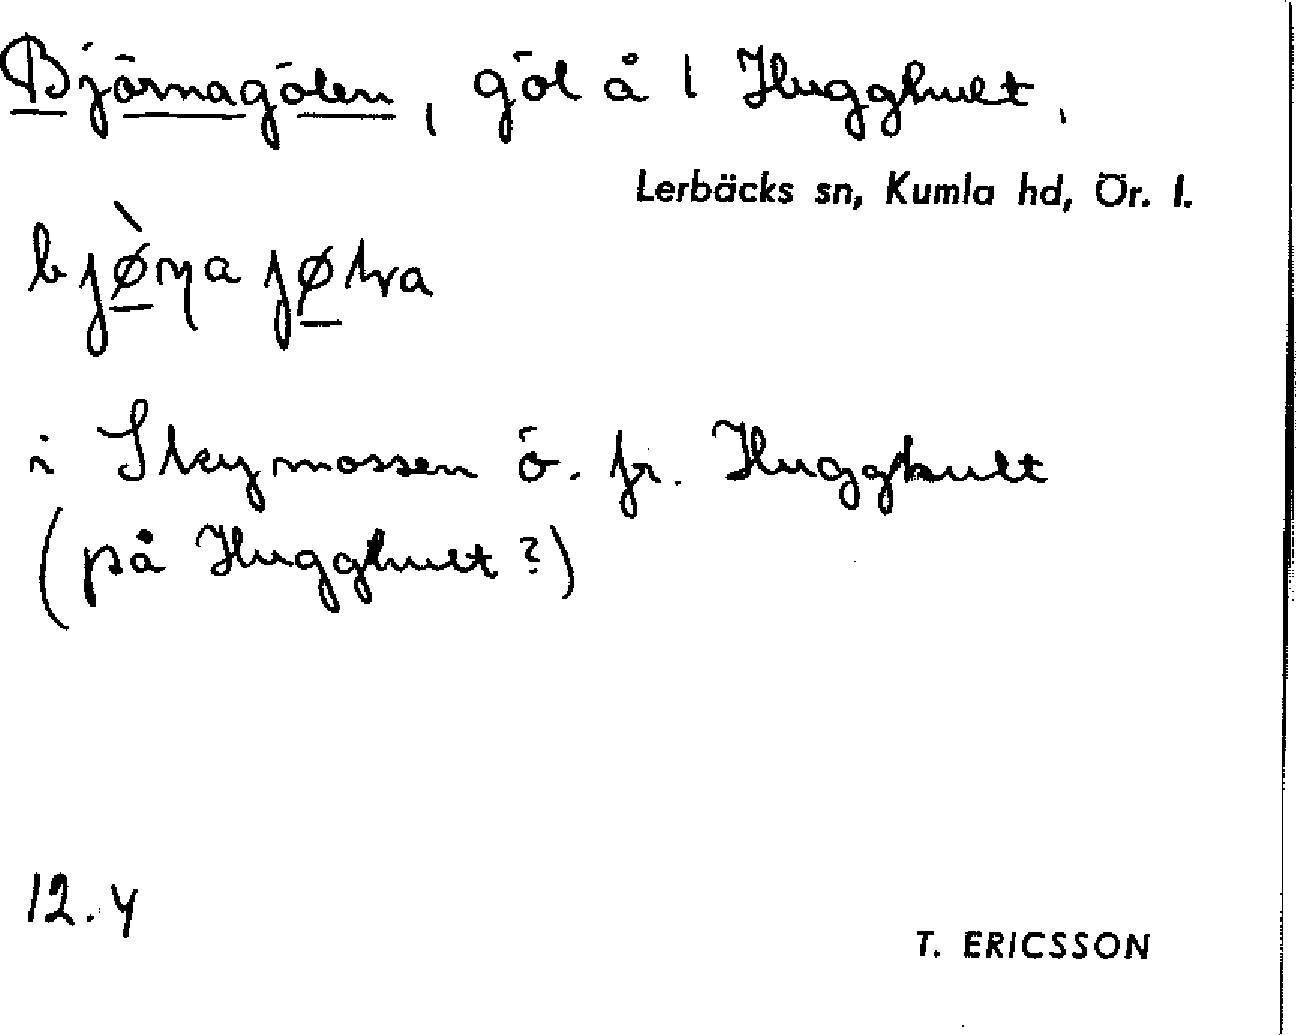 Björnagölen, göl å 1 Hugghult,
Lerbäcks sn, Kumla hd, Ör. l.
bjø̀ɳa jølva
i Skymossen ö. fr. Hugghult
(på Hugghult?)
12.4
T. ERICSSON